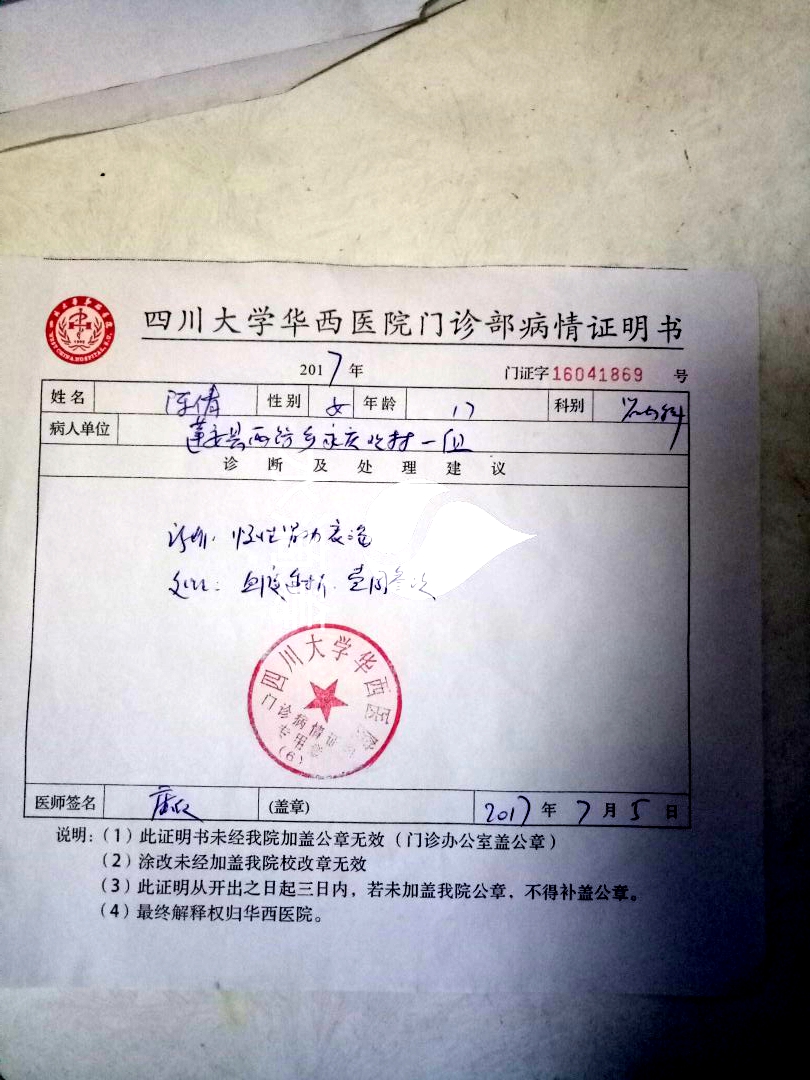 四川大学华西医院门诊部病情证明书
2017年 门证字16041869 号
姓名 陈倩 性别 女 年龄 17 科别
病人单位 蓬安县两路乡永庆 村一组
诊断及处理建议
诊断: 慢性肾功衰竭
处理: 血液透析. 每周叁次
四川大学华西医院
门诊病情证明
专用章
(6)
医师签名 (盖章) 2017 年 7 月 5 日
说明:(1)此证明书未经我院加盖公章无效(门诊办公室盖公章)
(2)涂改未经加盖我院校改章无效
(3)此证明从开出之日起三日内,若未加盖我院公章,不得补盖公章。
(4)最终解释权归华西医院。